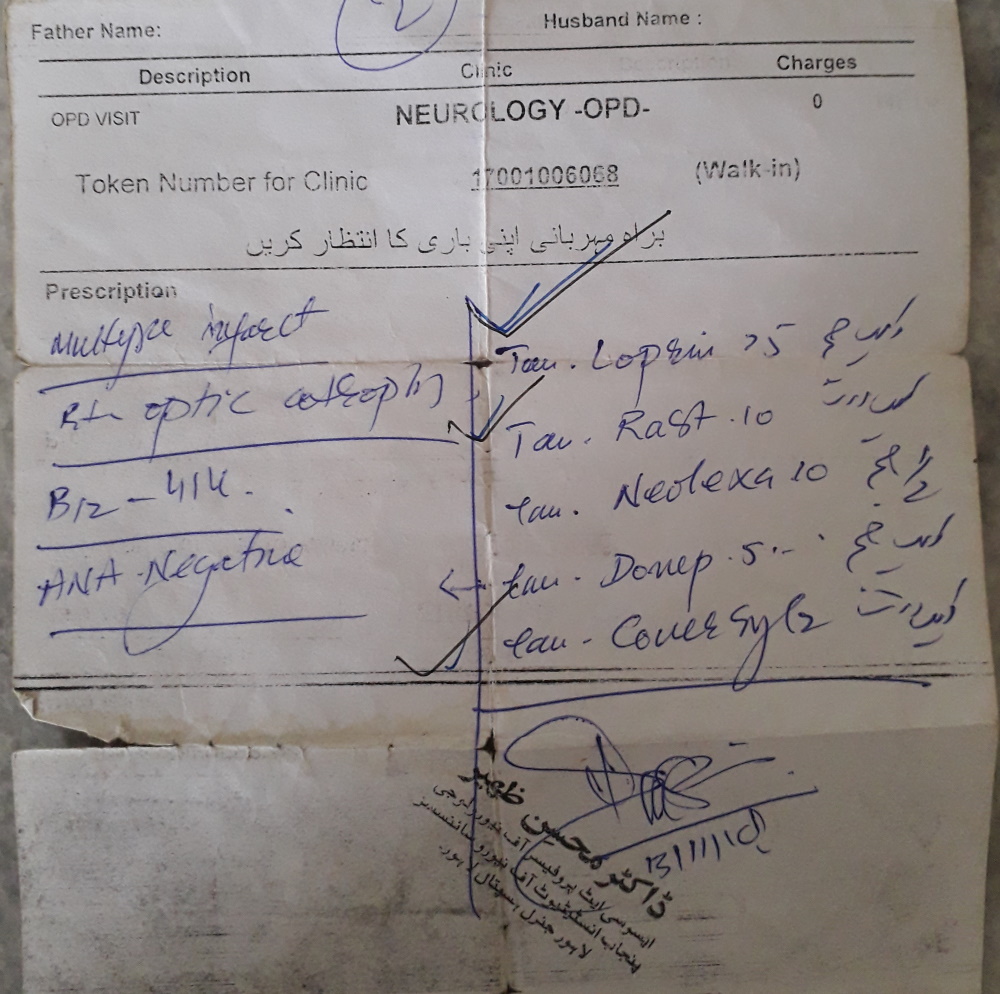 Father Name: Husband Name :
Description Clinic Charges
OPD VISIT NEUROLOGY -OPD- 0
Token Number for Clinic 17001006068 (Walk-in)
براہ مہربانی اپنی باری کا انتظار کریں
Prescription
Multiple infarct
Rt optic atrophy
B12 - 414.
ANA - Negative
Tab. Loprin 75 ایک صبح
Tab. Rast 10 ایک رات
Tab. Neolexa 10 1/2 صبح
Tab. Donep 5 ایک صبح
Tab - Coversyl 2 ایک رات
ڈاکٹر محسن ظہیر
ایسوسی ایٹ پروفیسر آف نیورولوجی
پنجاب انسٹیٹیوٹ آف نیورو سائنسسز
لاہور جنرل ہسپتال لاہور۔